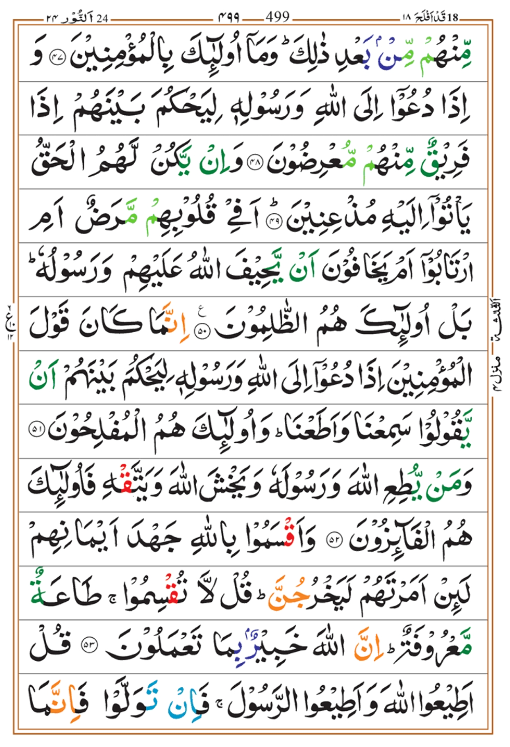 18 قَدْ اَفْلَحَ ۱۸ — 499 — ۴۹۹ — 24 اَلنُّوْر ۲۴
مِّنْهُمْ مِّنْۢ بَعْدِ ذٰلِكَ ؕ وَمَاۤ اُولٰٓئِكَ بِالْمُؤْمِنِيْنَ ﴿۴۷﴾ وَ
اِذَا دُعُوْۤا اِلَى اللّٰهِ وَرَسُوْلِهٖ لِيَحْكُمَ بَيْنَهُمْ اِذَا
فَرِيْقٌ مِّنْهُمْ مُّعْرِضُوْنَ ﴿۴۸﴾ وَاِنْ يَّكُنْ لَّهُمُ الْحَقُّ
يَاْتُوْۤا اِلَيْهِ مُذْعِنِيْنَ ؕ ﴿۴۹﴾ اَفِيْ قُلُوْبِهِمْ مَّرَضٌ اَمِ
ارْتَابُوْۤا اَمْ يَخَافُوْنَ اَنْ يَّحِيْفَ اللّٰهُ عَلَيْهِمْ وَرَسُوْلُهٗ ؕ
بَلْ اُولٰٓئِكَ هُمُ الظّٰلِمُوْنَ ﴿۵۰﴾ ع اِنَّمَا كَانَ قَوْلَ
الْمُؤْمِنِيْنَ اِذَا دُعُوْۤا اِلَى اللّٰهِ وَرَسُوْلِهٖ لِيَحْكُمَ بَيْنَهُمْ اَنْ
يَّقُوْلُوْا سَمِعْنَا وَاَطَعْنَا ؕ وَاُولٰٓئِكَ هُمُ الْمُفْلِحُوْنَ ﴿۵۱﴾
وَمَنْ يُّطِعِ اللّٰهَ وَرَسُوْلَهٗ وَيَخْشَ اللّٰهَ وَيَتَّقْهِ فَاُولٰٓئِكَ
هُمُ الْفَآئِزُوْنَ ﴿۵۲﴾ وَاَقْسَمُوْا بِاللّٰهِ جَهْدَ اَيْمَانِهِمْ
لَئِنْ اَمَرْتَهُمْ لَيَخْرُجُنَّ ؕ قُلْ لَّا تُقْسِمُوْا ۚ طَاعَةٌ
مَّعْرُوْفَةٌ ؕ اِنَّ اللّٰهَ خَبِيْرٌۢ بِمَا تَعْمَلُوْنَ ﴿۵۳﴾ قُلْ
اَطِيْعُوا اللّٰهَ وَاَطِيْعُوا الرَّسُوْلَ ۚ فَاِنْ تَوَلَّوْا فَاِنَّمَا
منزل ۴